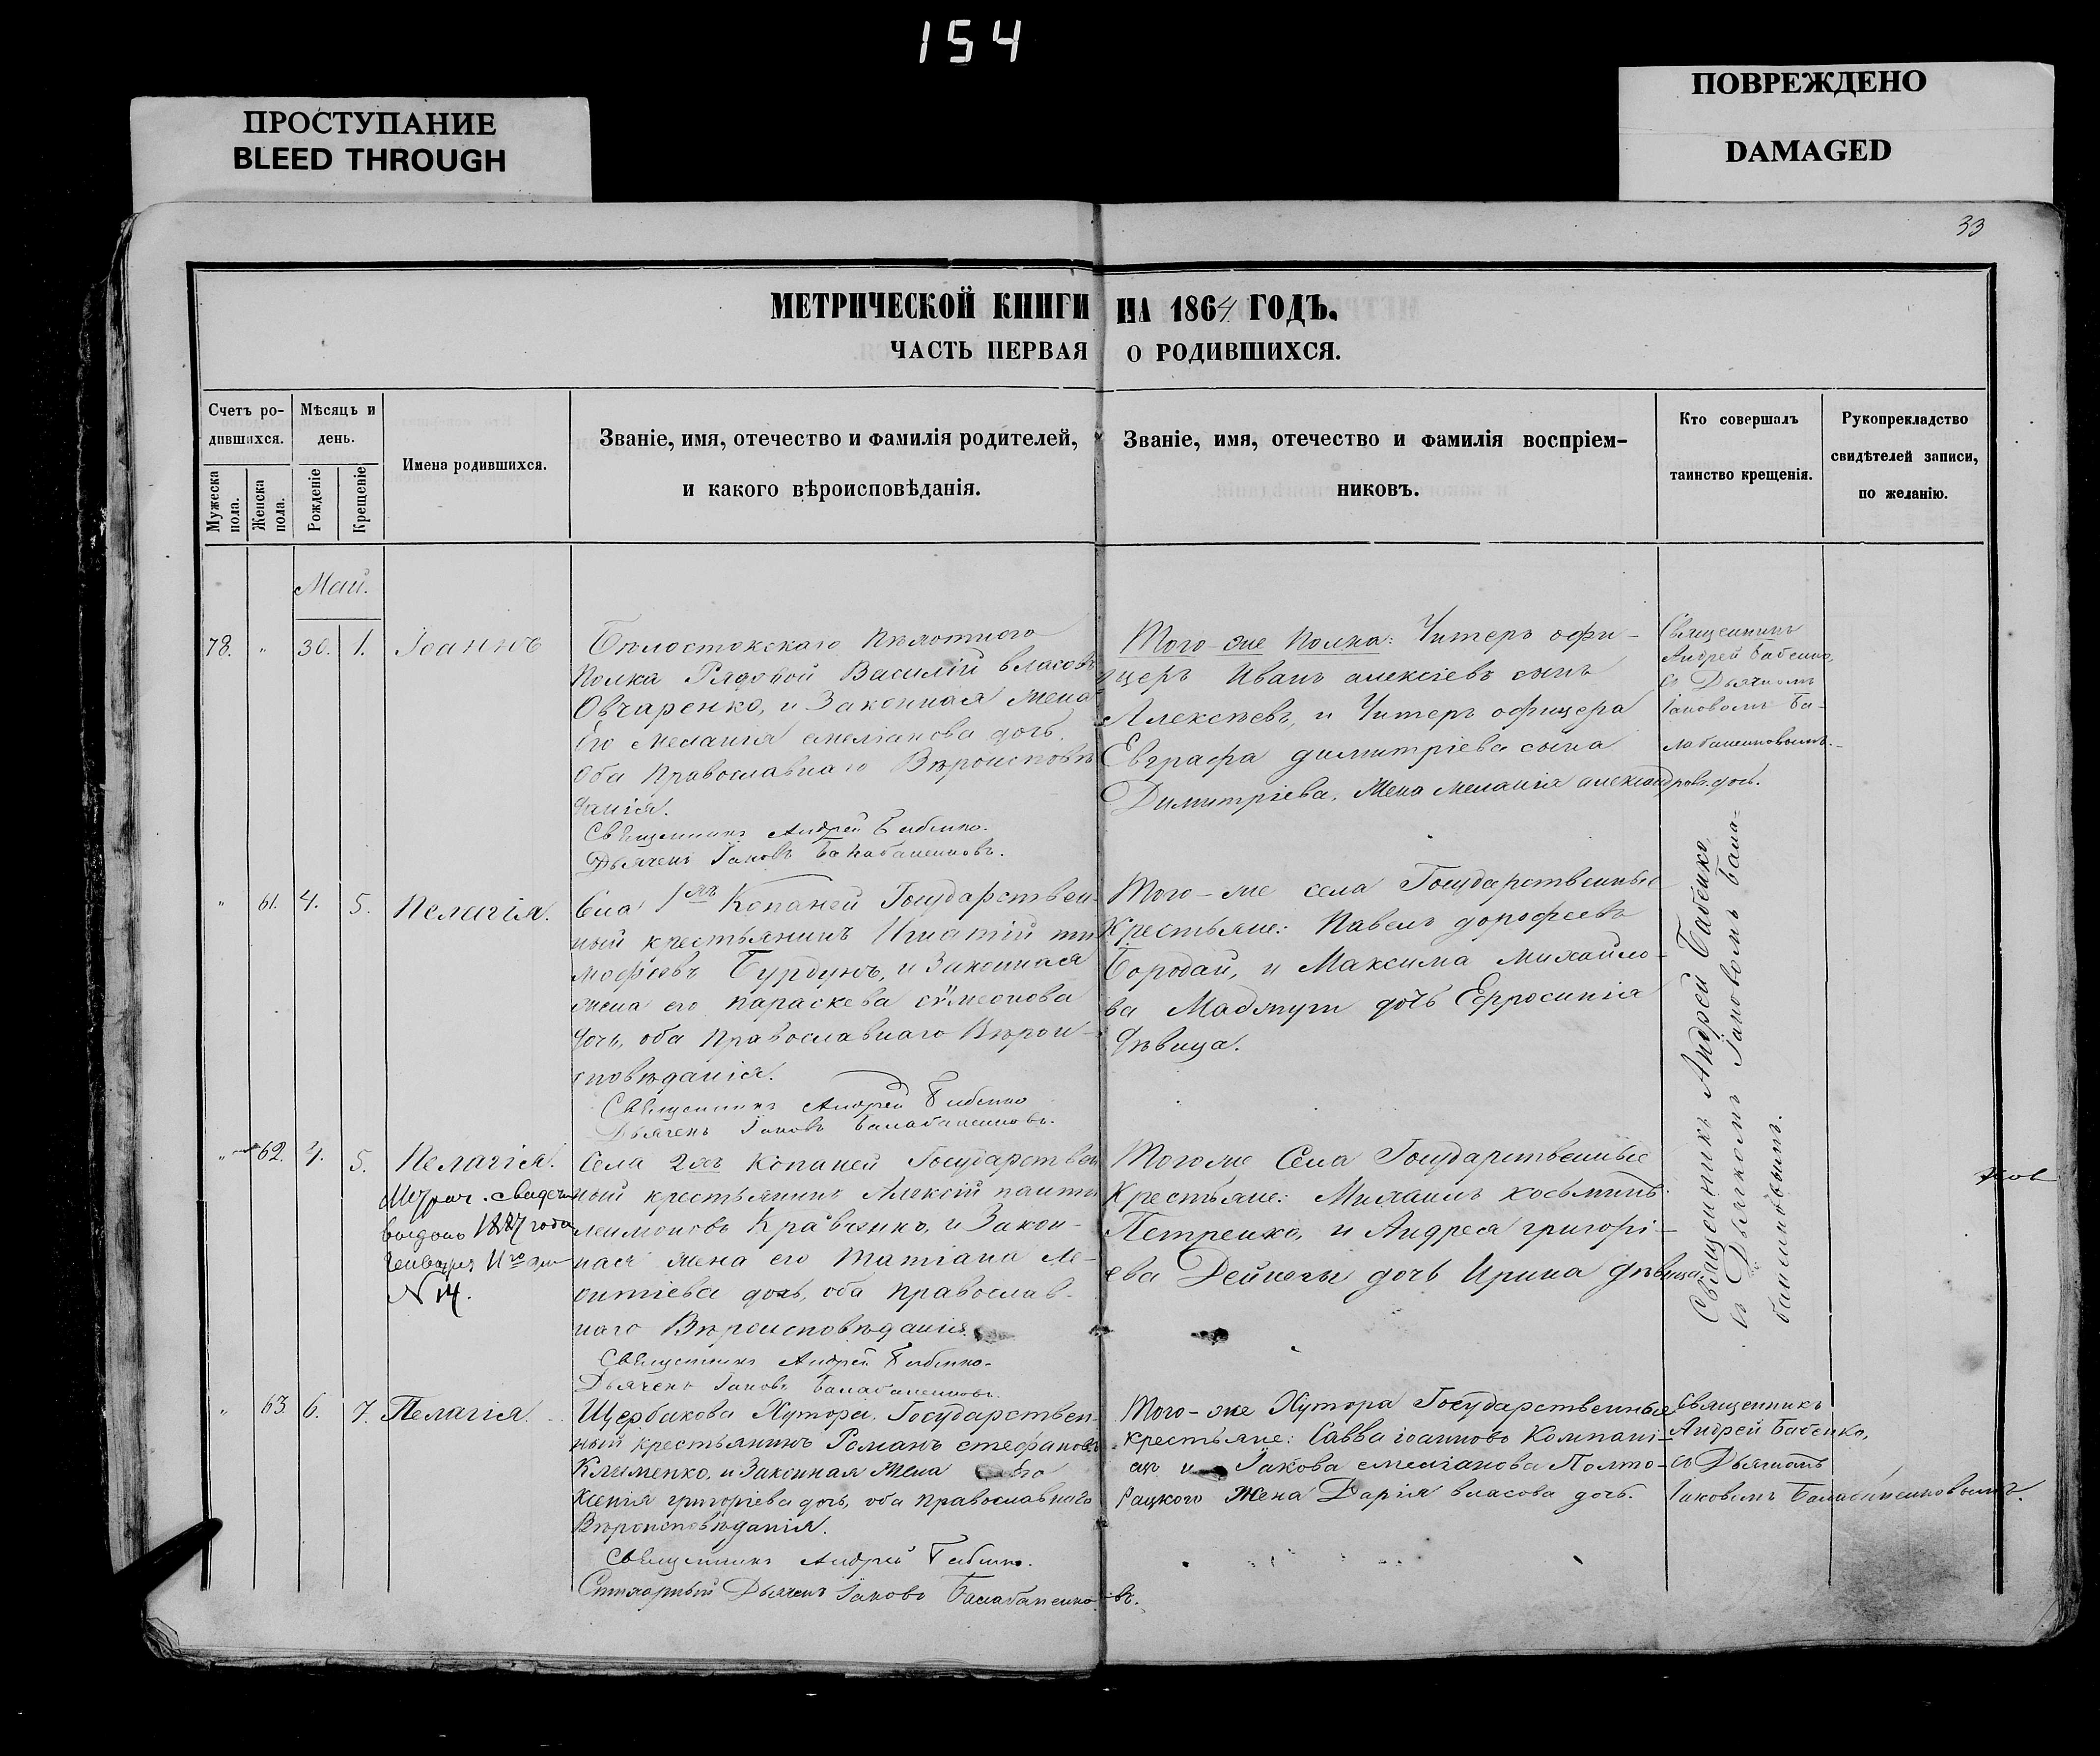 154
ПРОСТУПАНИЕ
BLEED THROUGH
ПОВРЕЖДЕНО
DAMAGED
33
МЕТРИЧЕСКОЙ КНИГИ НА 1864 ГОДЪ.
ЧАСТЬ ПЕРВАЯ О РОДИВШИХСЯ.
Счетъ ро-
дившихся.
Мужеска пола.
Женска пола.
Мѣсяцъ и
день.
Рожденіе
Крещеніе
Имена родившихся.
Званіе, имя, отечество и фамилія родителей,
и какого вѣроисповѣданія.
Званіе, имя, отечество и фамилія воспріем-
никовъ.
Кто совершалъ
таинство крещенія.
Рукоприкладство
свидѣтелей записи,
по желанію.
Май.
78. " 30. 1. Іоаннъ
Бѣлостокскаго Пѣхотного
Полка Рядовой Василій власовъ
Овчаренко, и Законная жена
Его меланія емеліанова дочь.
Оба Православнаго Вѣроисповѣ
данія.
Священникъ Андрей Бабенко.
Дьячекъ Іаковъ Балабаненковъ.
Того-же Полка: Унтеръ офи-
церъ Иванъ алексіевъ сынъ
Алексѣевъ, и Унтеръ офицера
Евграфа димитріева сына
Димитріева, жена меланія александрова дочь.
Священникъ
Андрей Бабенко,
съ Дьячкомъ
Іаковомъ Ба-
лабаненковымъ.
" 61. 4. 5. Пелагія.
Села 1хъ Копаней Государствен-
ный крестьянинъ Игнатій ти
мофѣевъ Бурдунъ, и Законная
жена его параскева сѵмеонова
дочь, оба Православнаго Вѣрои-
сповѣданія.
Священникъ Андрей Бабенко
Дьячекъ Іаковъ Балабаненковъ.
Того-же села Государственные
Крестьяне: Павелъ дорофеевъ
Бородай, и Максима михайло-
ва дочь Ефросинія
дѣвица.
Священникъ Андрей Бабенко,
съ Дьячкомъ Іаковомъ Бала-
баненковымъ.
" 62. 4. 5. Пелагія.
Метрич. свидет.
выдано 1887 года
Генваря 11го дня
N 14.
Села 2хъ Копаней Государствен
ный крестьянинъ Алексій панте
леимоновъ Кравченко, и Закон-
ная жена его Татіана Ле-
онтіева дочь, оба православ-
наго Вѣроисповѣданія.
Священникъ Андрей Бабенко.
Дьячекъ Іаковъ Балабаненковъ.
Тогоже Села Государственные
Крестьяне: Михаилъ косьминъ
Петренко, и Андрея григорі-
ева Дейнеги дочь Ирина дѣвица.
" 63. 6. 7. Пелагія.
Щербакова Хутора, Государствен-
ный крестьянинъ Романъ стефановъ
Клименко, и Законная Жена Его
Ксенія григоріева дочь, оба православнаго
Вѣроисповѣданія.
Священникъ Андрей Бабенко.
Стихарный Дьячекъ Іаковъ Балабаненковъ.
Того-же Хутора Государственные
крестьяне: Савва іоанновъ Компані-
ец и Іакова емеліанова Полто-
рацкого Жена Дарія власова дочь.
Священникъ
Андрей Бабенко,
съ Дьячкомъ
Іаковомъ Балабаненковымъ.